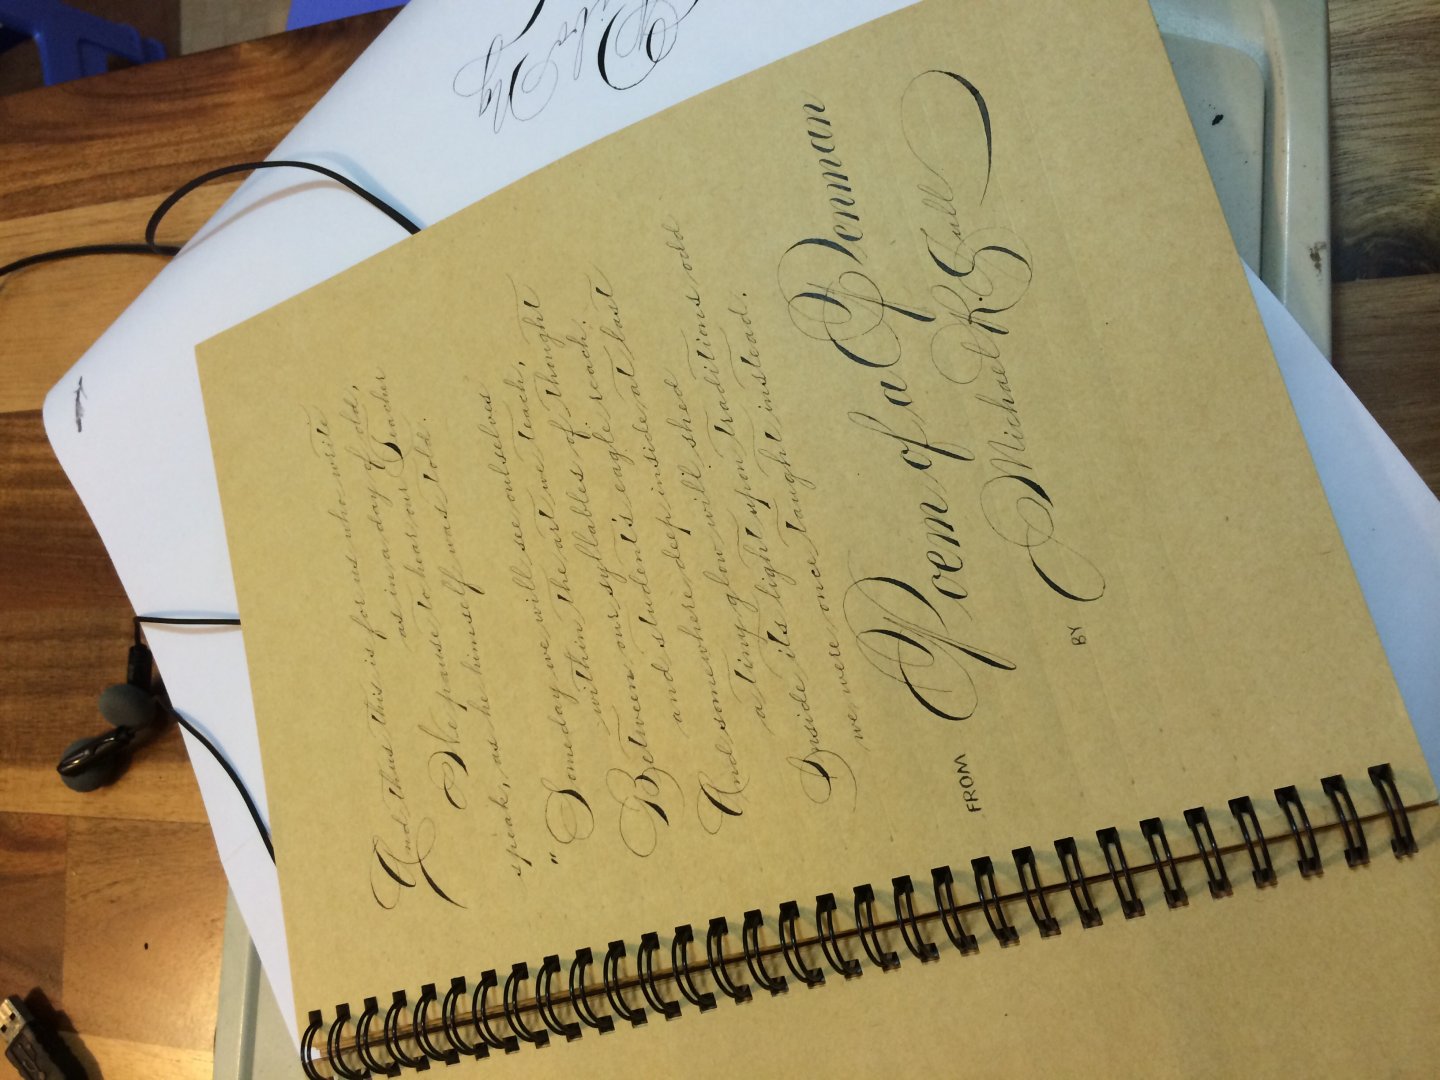 And thus this is for us who write
as in a day of old,
We pause to hear our Teacher
speak, as he himself was told.
"Someday we will see ourselves
within the art we teach,
Between our syllables of thought
and student's eagle reach.
And somewhere deep inside at last
a tiny glow will shed
Inside its light upon traditions old
we were once taught instead.
FROM
Poem of a Penman
BY
Michael R. Sull